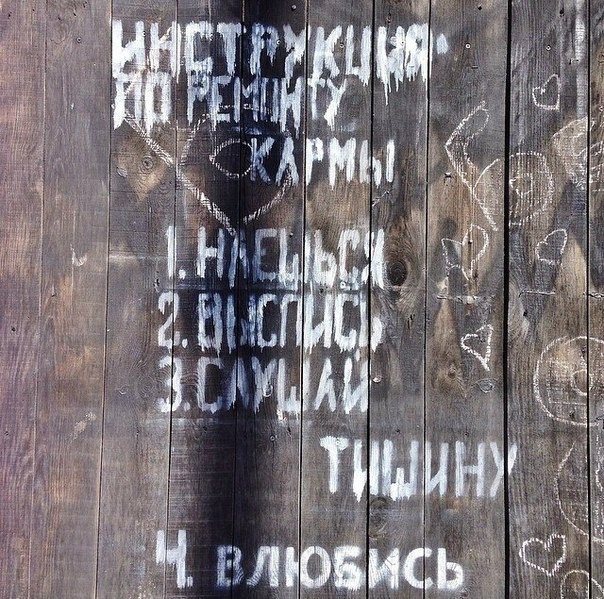 ИНСТРУКЦИЯ
ПО РЕМОНТУ
КАРМЫ
1. НАЕШЬСЯ
2. ВЫСПИСЬ
3. СЛУШАЙ
ТИШИНУ
4. ВЛЮБИСЬ